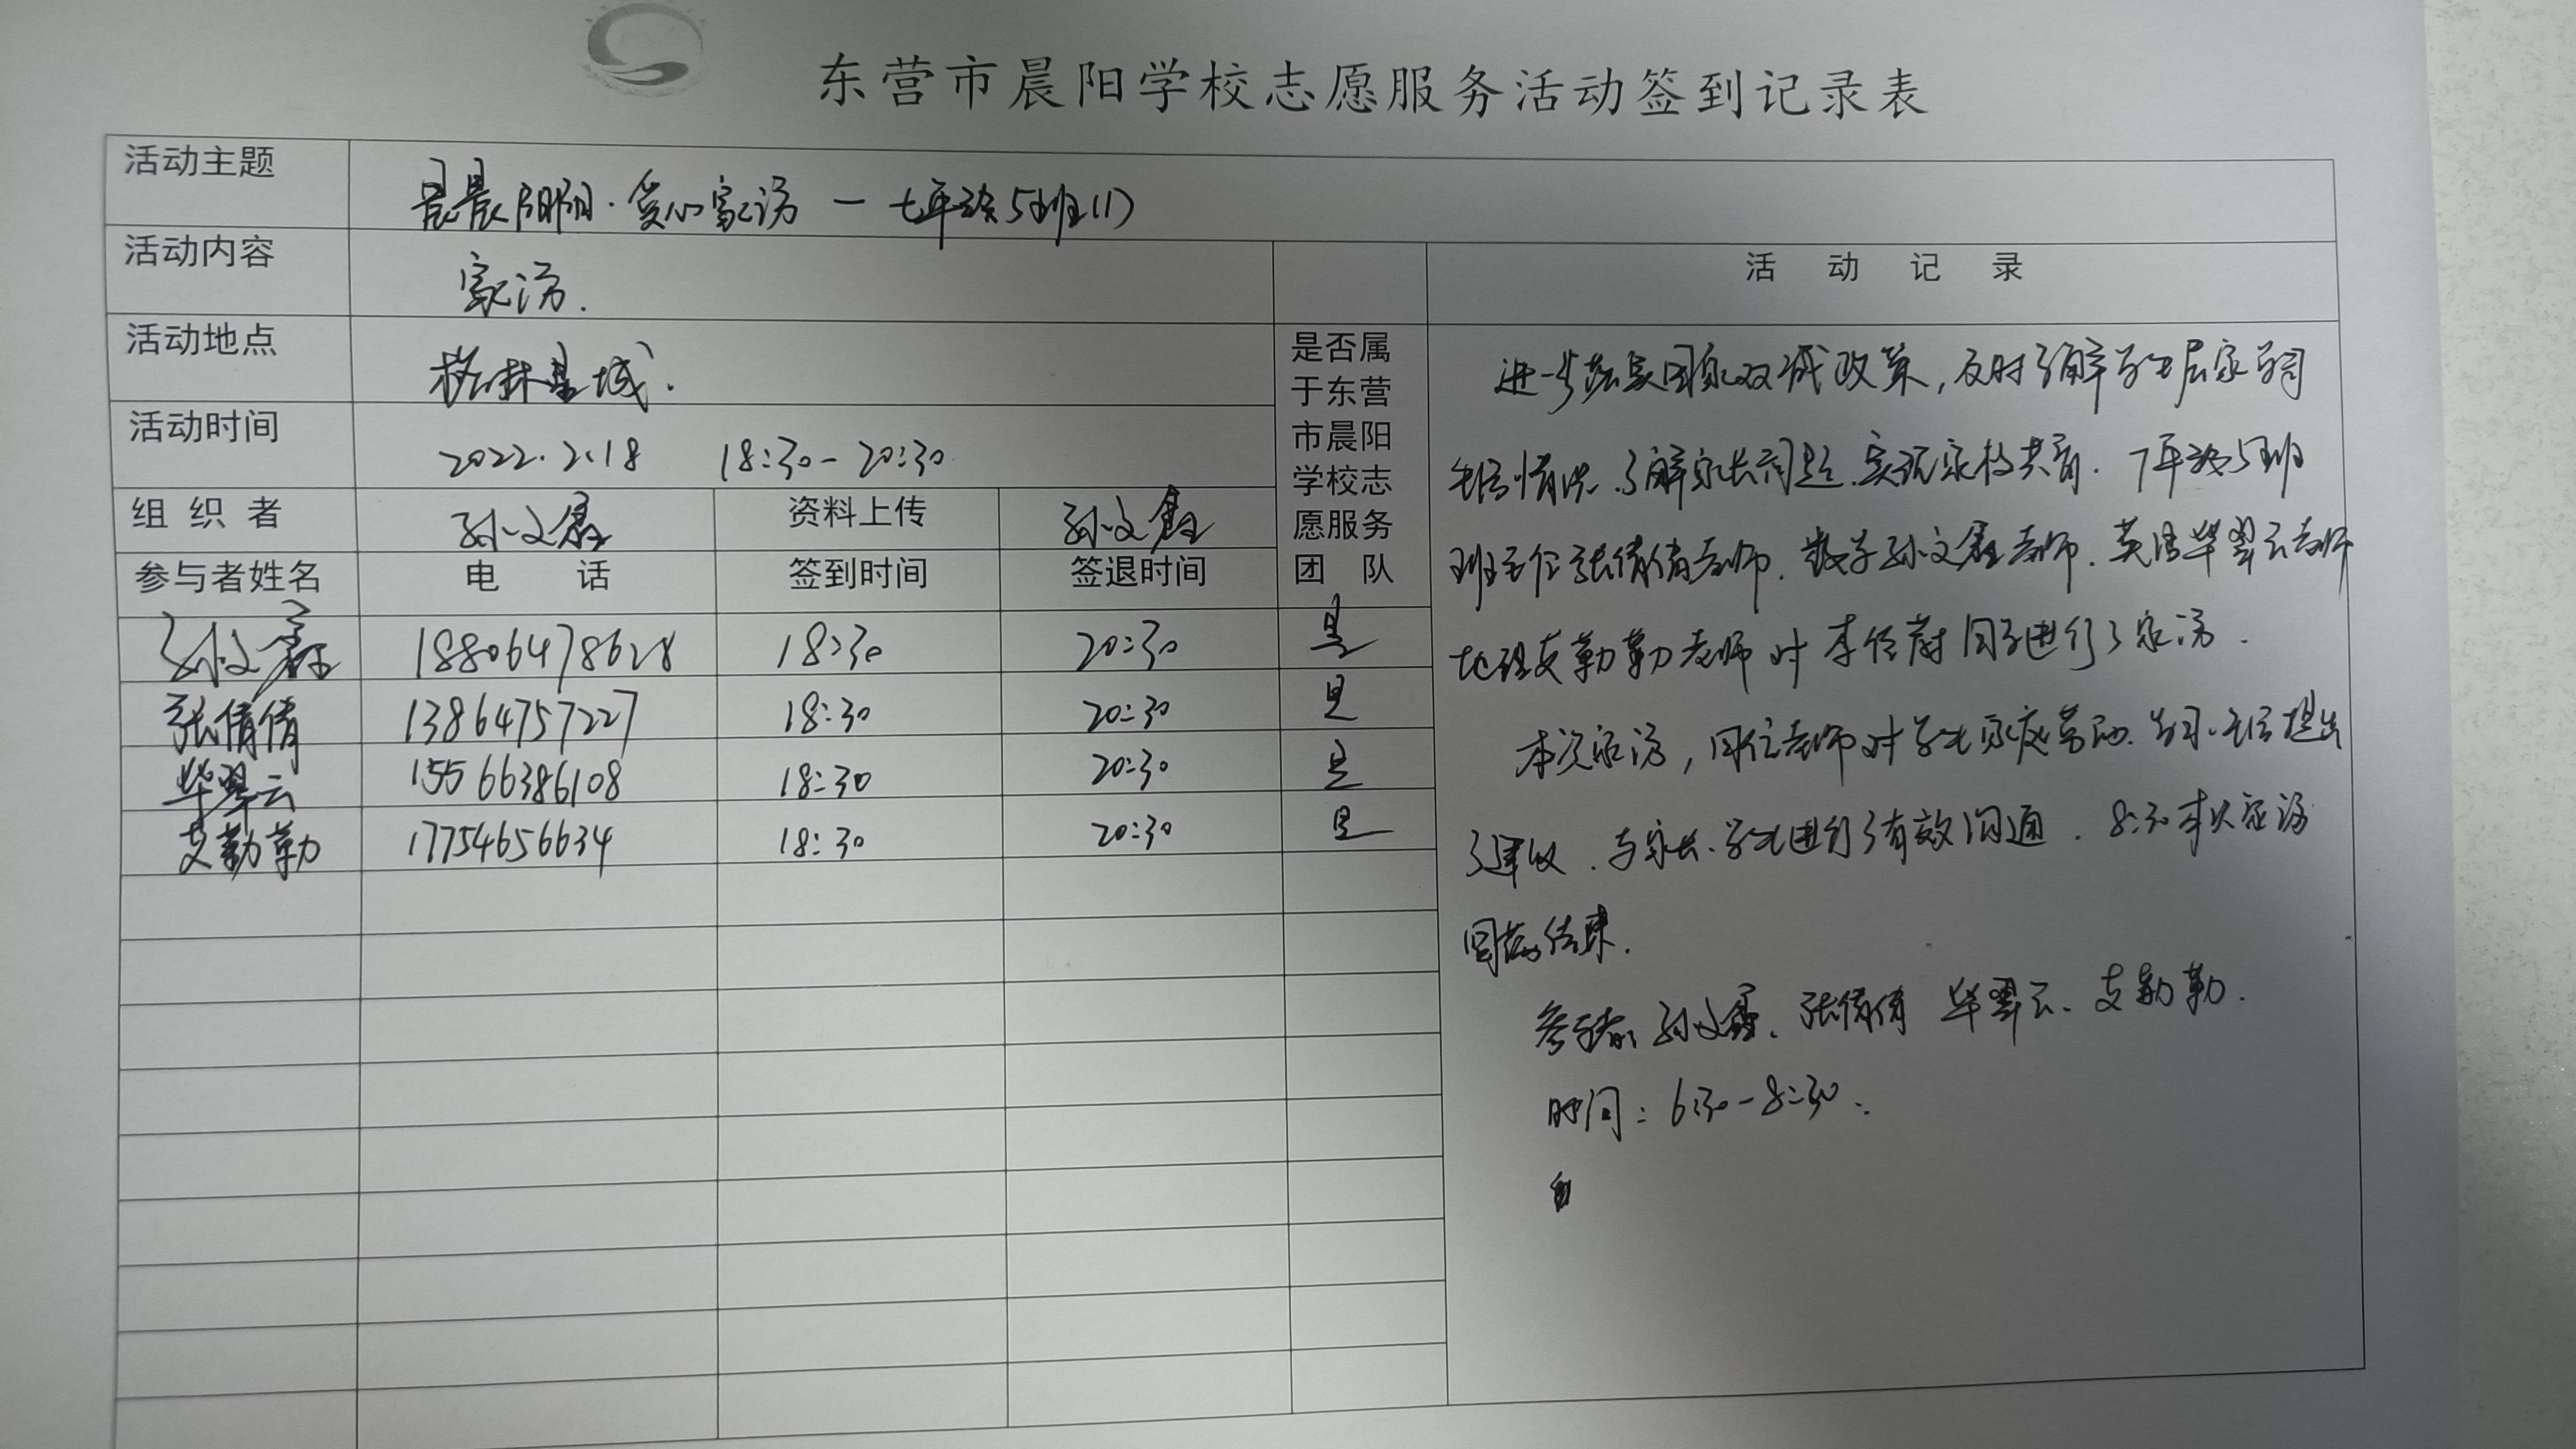 东营市晨阳学校志愿服务活动签到记录表
活动主题 晨晨阳阳·爱心家访 — 七年级5班(1)
活动内容 家访.
活动记录
活动地点 林 城.
活动时间 2022.2.18 18:30-20:30
是否属
于东营
市晨阳
学校志
愿服务
团 队
组 织 者 孙文 资料上传 孙文
参与者姓名 电 话 签到时间 签退时间
孙文 18806478628 18:30 20:30 是
张倩倩 13864757227 18:30 20:30 是
毕翠云 15566386108 18:30 20:30 是
支勤勤 17754656634 18:30 20:30 是
进一步落实国家双减政策,及时了解学生居家学习
生活情况.了解家长问题.实现家校共育. 7年级5班
班主任张倩倩老师.数学孙文 老师.英语毕翠云老师
地理支勤勤老师对李 同学进行了家访.
本次家访, 老师对学生家庭劳动.学习.生活提出
了建议.与家长.学生进行了有效沟通. 8:30本次家访
圆满结束.
参与者:孙文 、张倩倩 毕翠云、支勤勤.
时间:6:30-8:30.